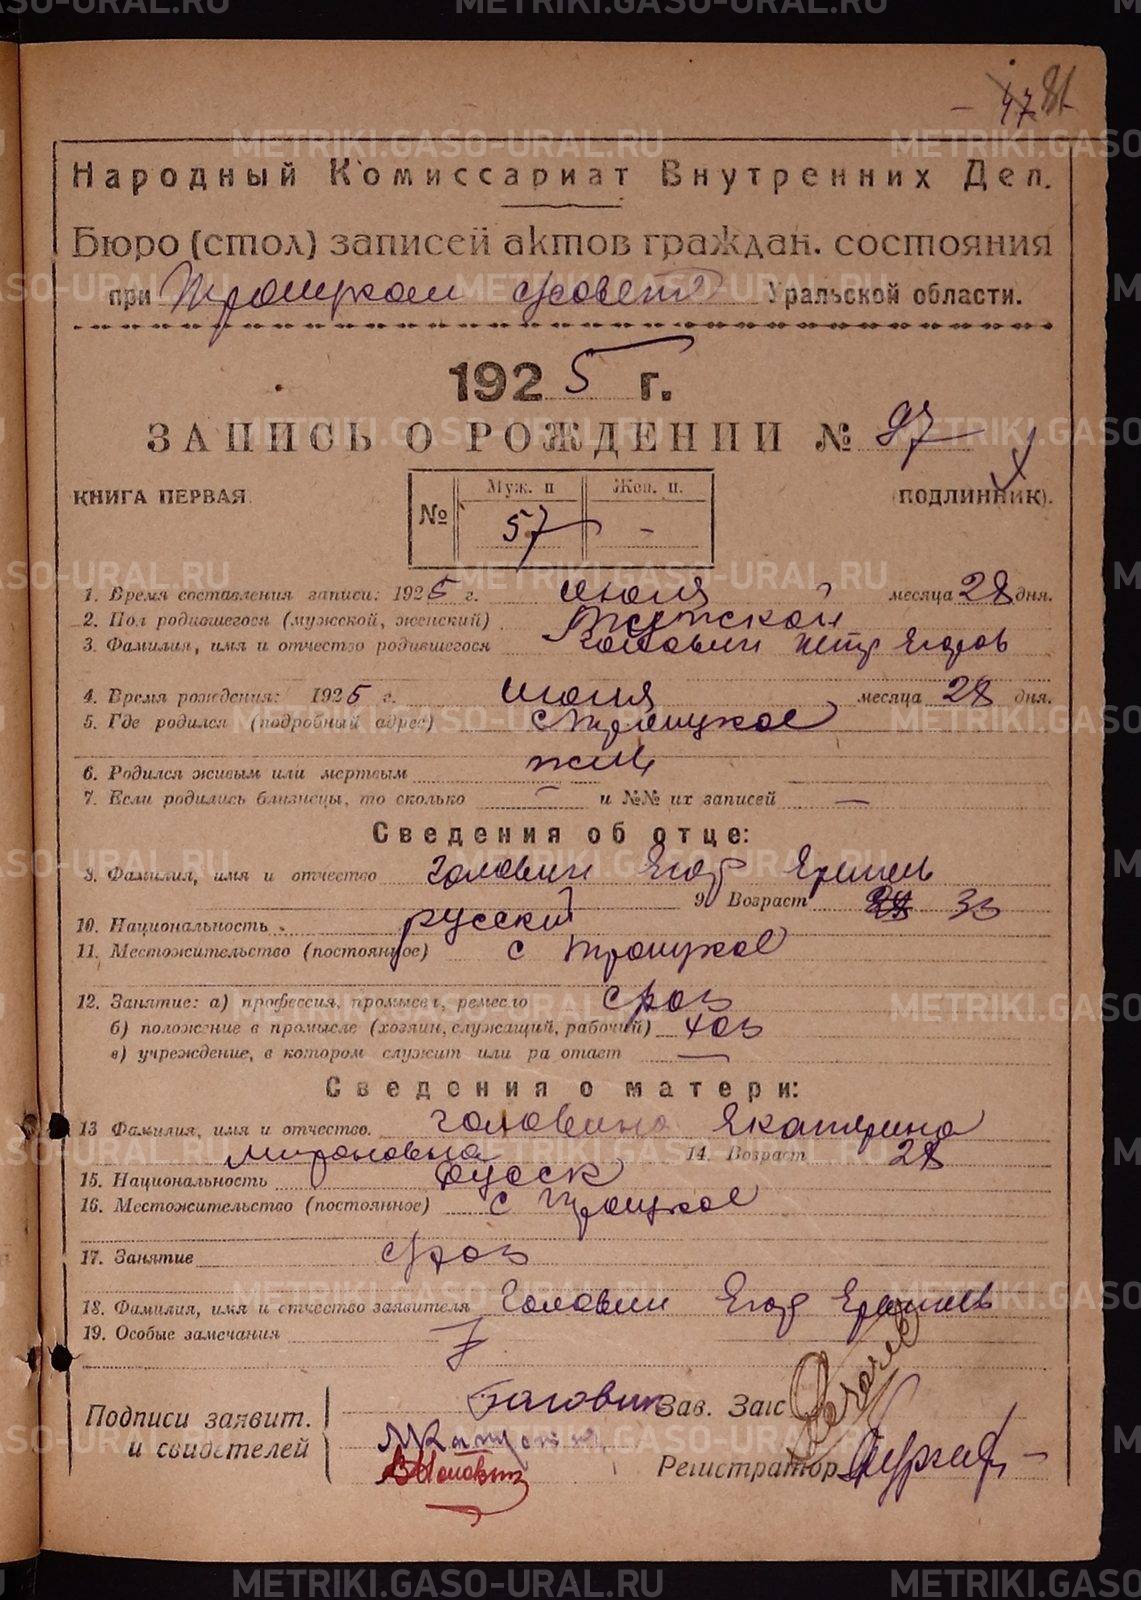 METRIKI.GASO-URAL.RU
81
47
Народный Комиссариат Внутренних Дел.
Бюро (стол) записей актов граждан. состояния
при Троицком совете Уральской области.
1925 г.
ЗАПИСЬ О РОЖДЕНИИ № 97
КНИГА ПЕРВАЯ (ПОДЛИННИК).
№ Муж. п Жен. п.
57 -
1. Время составления записи: 1925 г. июля месяца 28 дня.
2. Пол родившегося (мужской, женский) Мужской
3. Фамилия, имя и отчество родившегося Головин Петр Егоров
4. Время рождения: 1925 г. июля месяца 28 дня.
5. Где родился (подробный адрес) с Троицкое
6. Родился живым или мертвым жив
7. Если родились близнецы, то сколько — и №№ их записей —
Сведения об отце:
8. Фамилия, имя и отчество Головин Егор
9. Возраст 33
10. Национальность русский
11. Местожительство (постоянное) с Троицкое
12. Занятие: а) профессия, промысел, ремесло
б) положение в промысле (хозяин, служащий, рабочий) хоз
в) учреждение, в котором служит или ра отает —
Сведения о матери:
13 Фамилия, имя и отчество. Головина Екатерина
Мироновна 14. Возраст 28
15. Национальность русск
16. Местожительство (постоянное) с Троицкое
17. Занятие
18. Фамилия, имя и отчество заявителя Головин Егор
19. Особые замечания
Подписи заявит. и свидетелей
Головин Зав. Загс
Регистратор